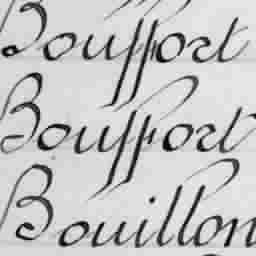 Bouffort
Bouffort
Bouillon